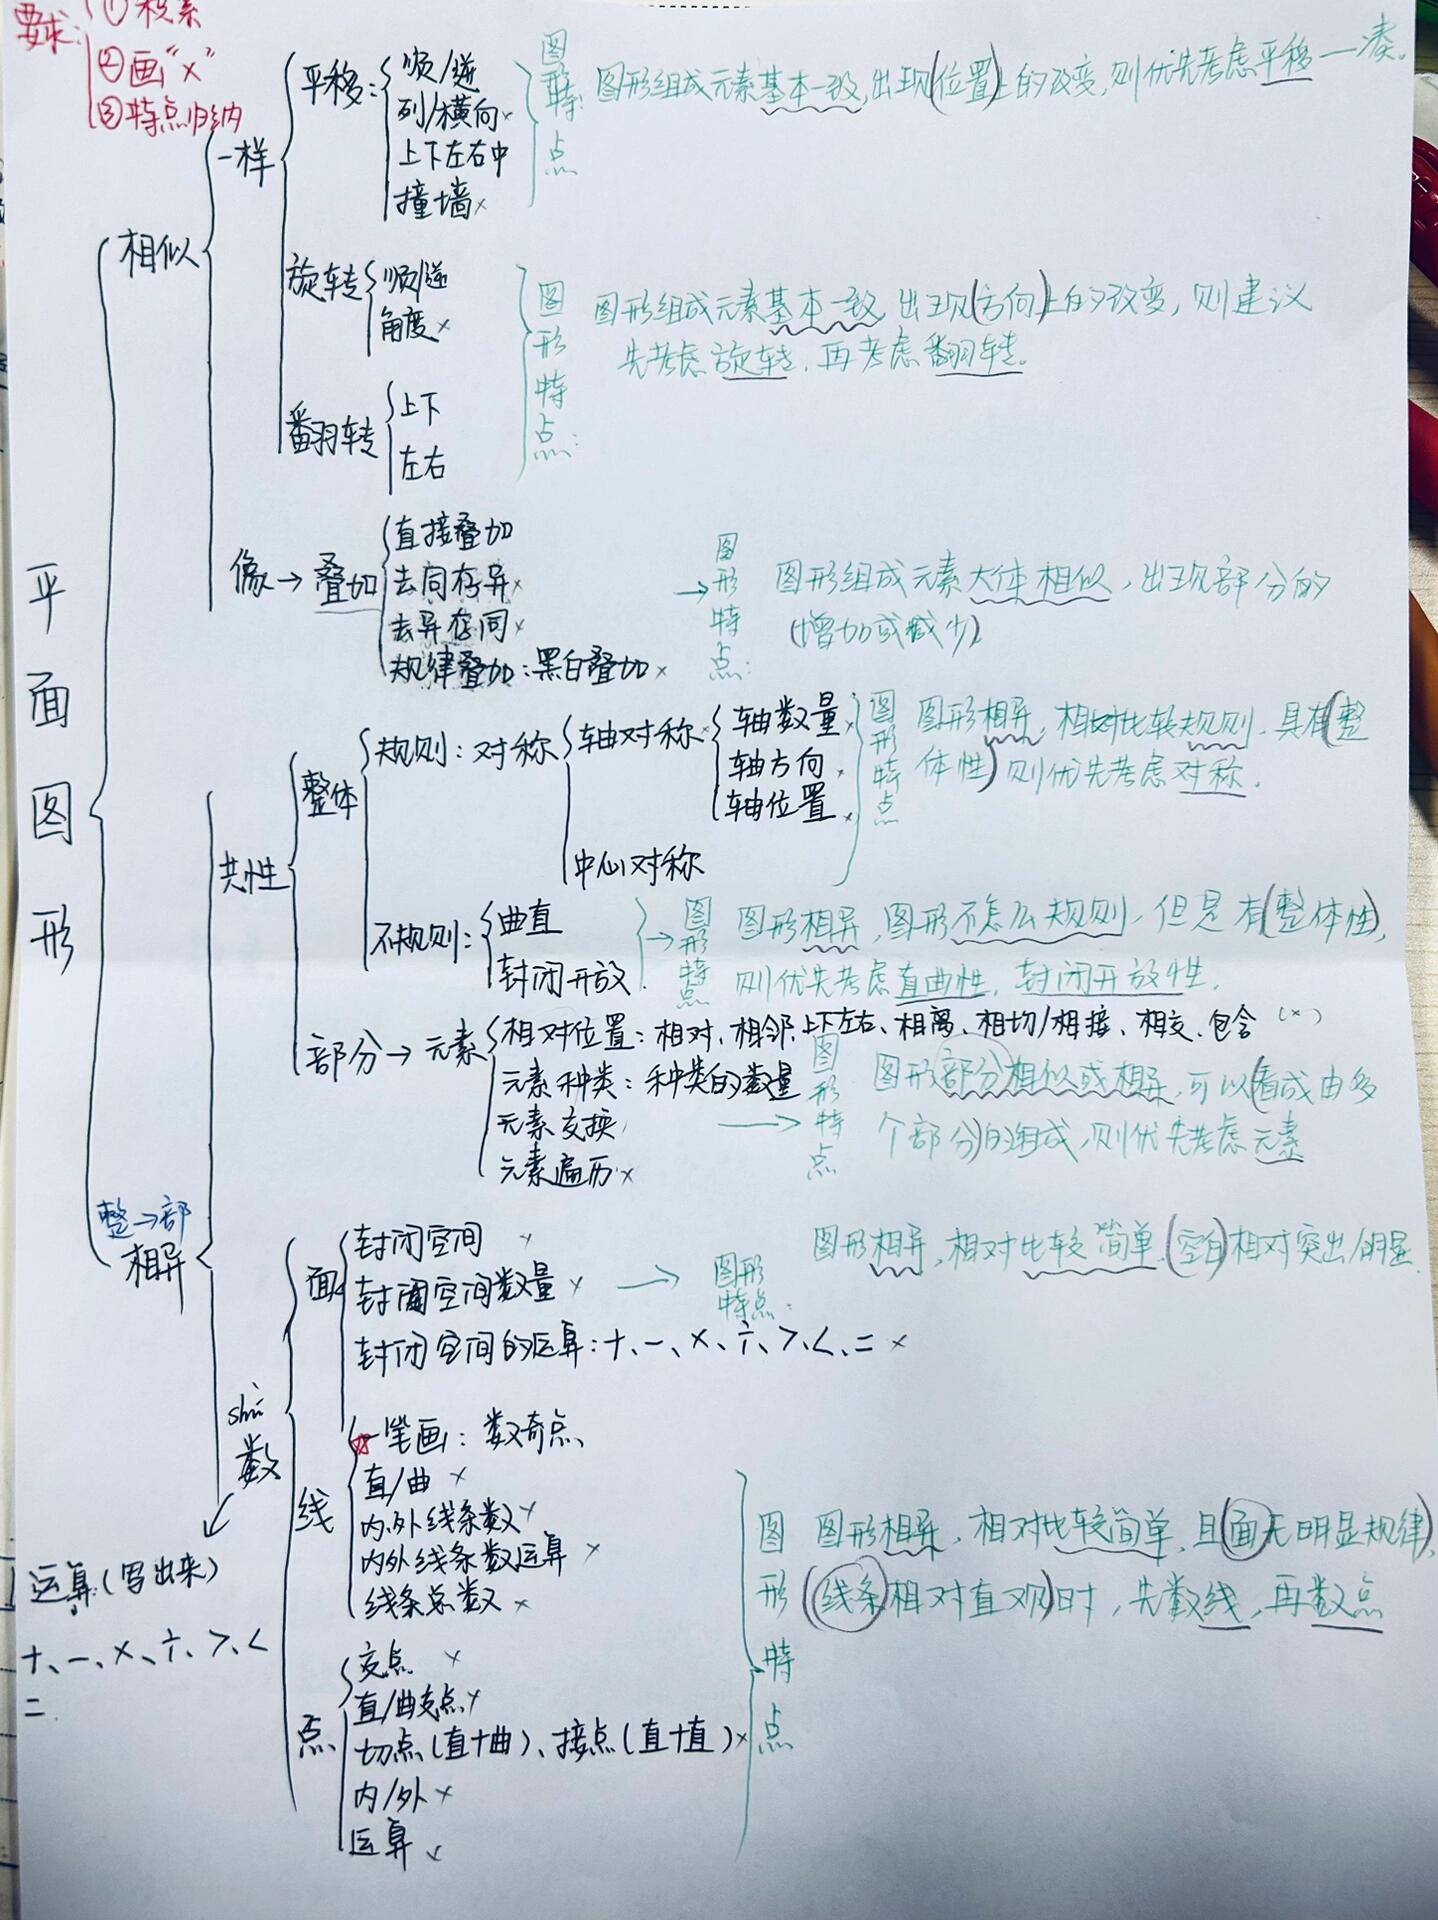 要求:
②画“x”
③特点归纳
平面图形
相似
一样
平移:
顺/逆
列/横向x
上下左右中
撞墙x
图形特点
图形组成元素基本一致,出现(位置)上的改变,则优先考虑平移一凑。
旋转
顺/逆
角度x
翻转
上下
左右
图形特点:
图形组成元素基本一致,出现(方向)上的改变,则建议
先考虑旋转,再考虑翻转。
像→叠加
直接叠加
去同存异x
去异存同x
规律叠加:黑白叠加x
→图形特点:
图形组成元素大体相似,出现部分的
(增加或减少)
整→部
相异
共性
整体
规则:对称
轴对称x
轴数量x
轴方向x
轴位置x
中心对称
图形特点
图形相异,相对比较规则,具有(整
体性)则优先考虑对称.
不规则:
曲直
封闭开放
→图形特点
图形相异,图形不怎么规则,但是有(整体性),
则优先考虑直曲性,封闭开放性.
部分→元素
相对位置:相对、相邻、上下左右、相离、相切/相接、相交、包含(x)
元素种类:种类的数量
元素交换
元素遍历x
→图形特点
图形部分相似或相异,可以(看成由多
个部分)的组成,则优先考虑元素
shǔ
数
运算:(写出来)
+、-、x、÷、>、<
=
面
封闭空间x
封闭空间数量x
封闭空间的运算:+、-、x、÷、>、<、=x
→图形特点:
图形相异,相对比较简单,(空白)相对突出/明显.
线
一笔画:数奇点
直/曲x
内.外线条数x
内外线条数运算x
线条总数x
点
交点x
直/曲交点x
切点(直+曲)、接点(直+直)x
内/外x
运算x
图形特点
图形相异,相对比较简单,且(面无明显规律),
(线条相对直观)时,先数线,再数点